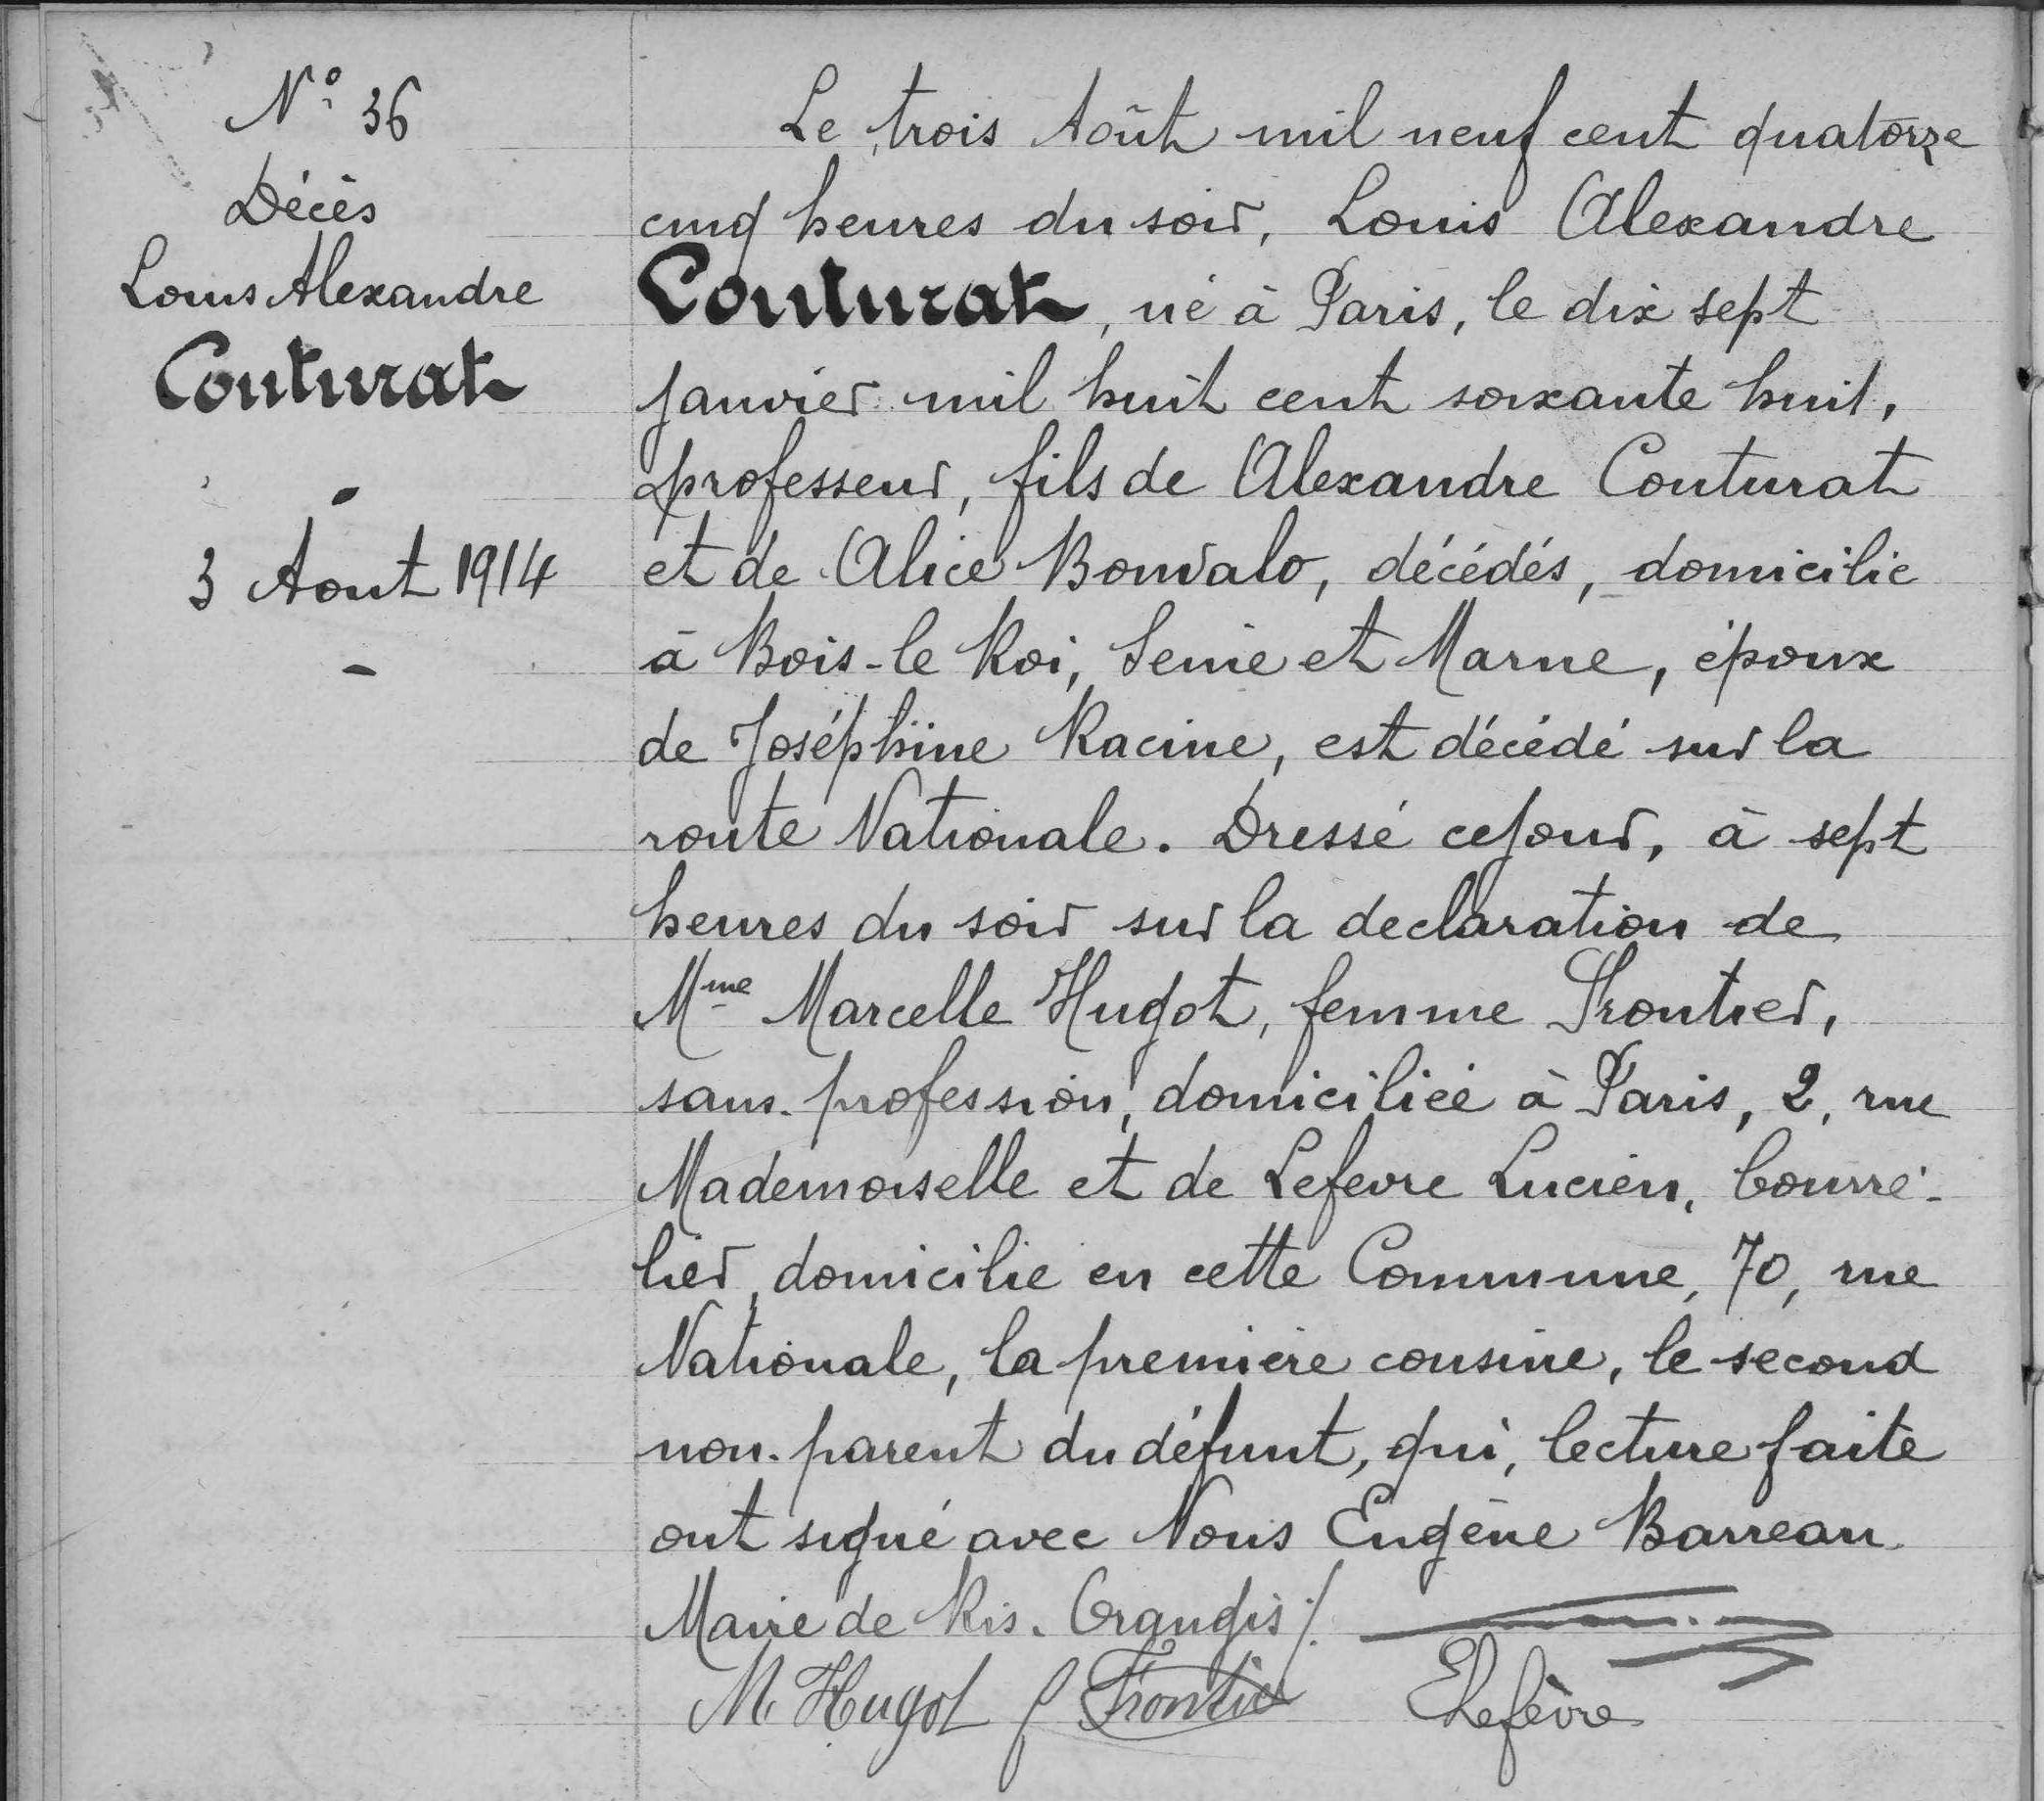 N° 36
Décès
Louis Alexandre
Couturat
3 Aout 1914
Le trois Août mil neuf cent quatorze
cinq heures du soir, Louis Alexandre
Couturat, né à Paris, le dix sept
janvier mil huit cent soixante huit,
professeur, fils de Alexandre Couturat
et de Alice Bonvalo, décédés, domicilié
à Bois-le Roi, Seine et Marne, époux
de Joséphine Racine, est décédé sur la
route Nationale. Dressé ce jour, à sept
heures du soir sur la declaration de
Mme Marcelle Hugot, femme Trontier,
sans profession, domiciliée à Paris, 2, rue
Mademoiselle et de Lefevre Lucien, bourre-
lier, domicilié en cette Commune, 70, rue
Nationale, la première cousine, le second
non-parent du défunt, qui, lecture faite
ont signé avec Nous Eugène Barreau
Maire de Ris-Orangis ./.
M Hugot f Trontier
Lefèvre